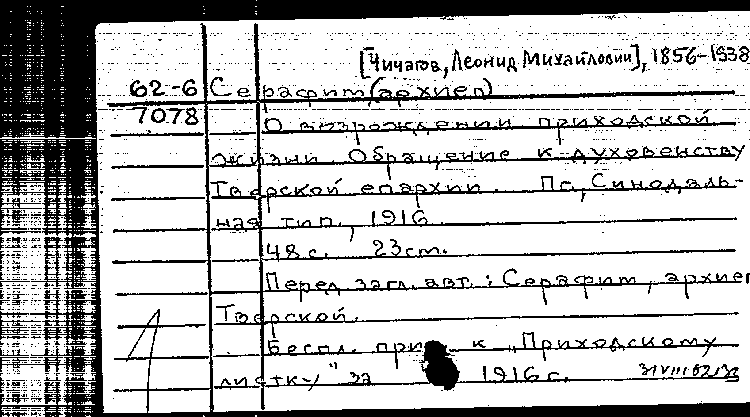 [Чичагов, Леонид Михайлович], 1856-1938
62-6 Серафим (архиеп)
7078 О возрождении приходской
жизни Обращение к духовенству
Тверской епархии. Пг., Синодаль-
ная тип., 1916
48 с. 23 см.
Перед загл. авт.: Серафим, архиеп
Тверской.
Беспл. к „Приходскому
листку" за 1916 г.